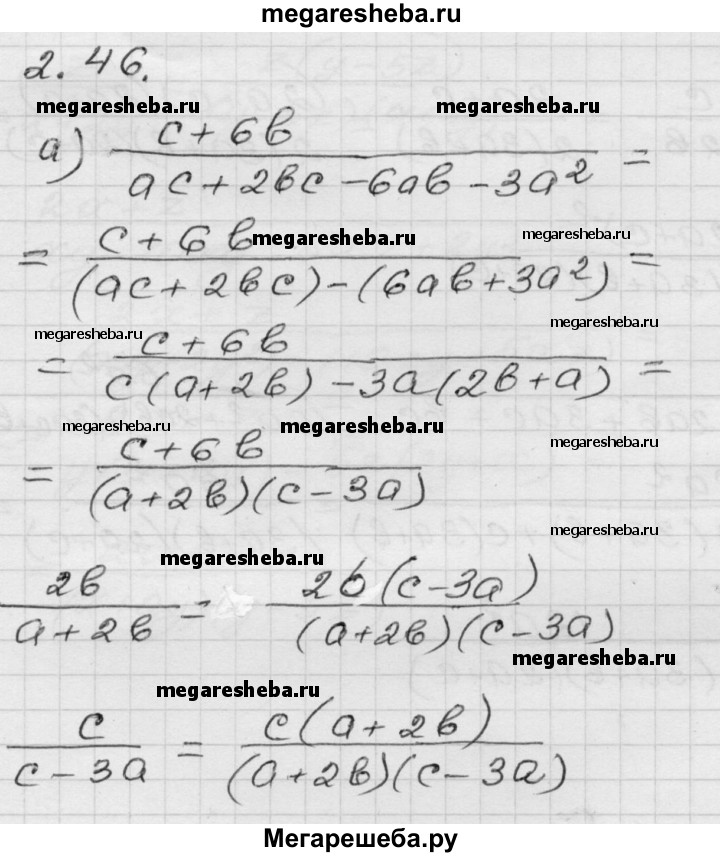 megaresheba.ru
2.46.
megaresheba.ru megaresheba.ru
а) (c+6b)/(ac+2bc-6ab-3a²) =
= (c+6b)/((ac+2bc)-(6ab+3a²)) =
megaresheba.ru megaresheba.ru
megaresheba.ru megaresheba.ru
= (c+6b)/(c(a+2b)-3a(2b+a)) =
megaresheba.ru megaresheba.ru megaresheba.ru
= (c+6b)/((a+2b)(c-3a))
megaresheba.ru megaresheba.ru
2b/(a+2b) = 2b(c-3a)/((a+2b)(c-3a))
megaresheba.ru
megaresheba.ru
c/(c-3a) = c(a+2b)/((a+2b)(c-3a))
Мегарешеба.ру